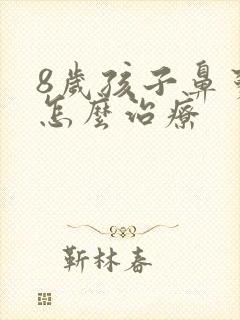 8歲孩子鼻
怎麼治療
靳林春